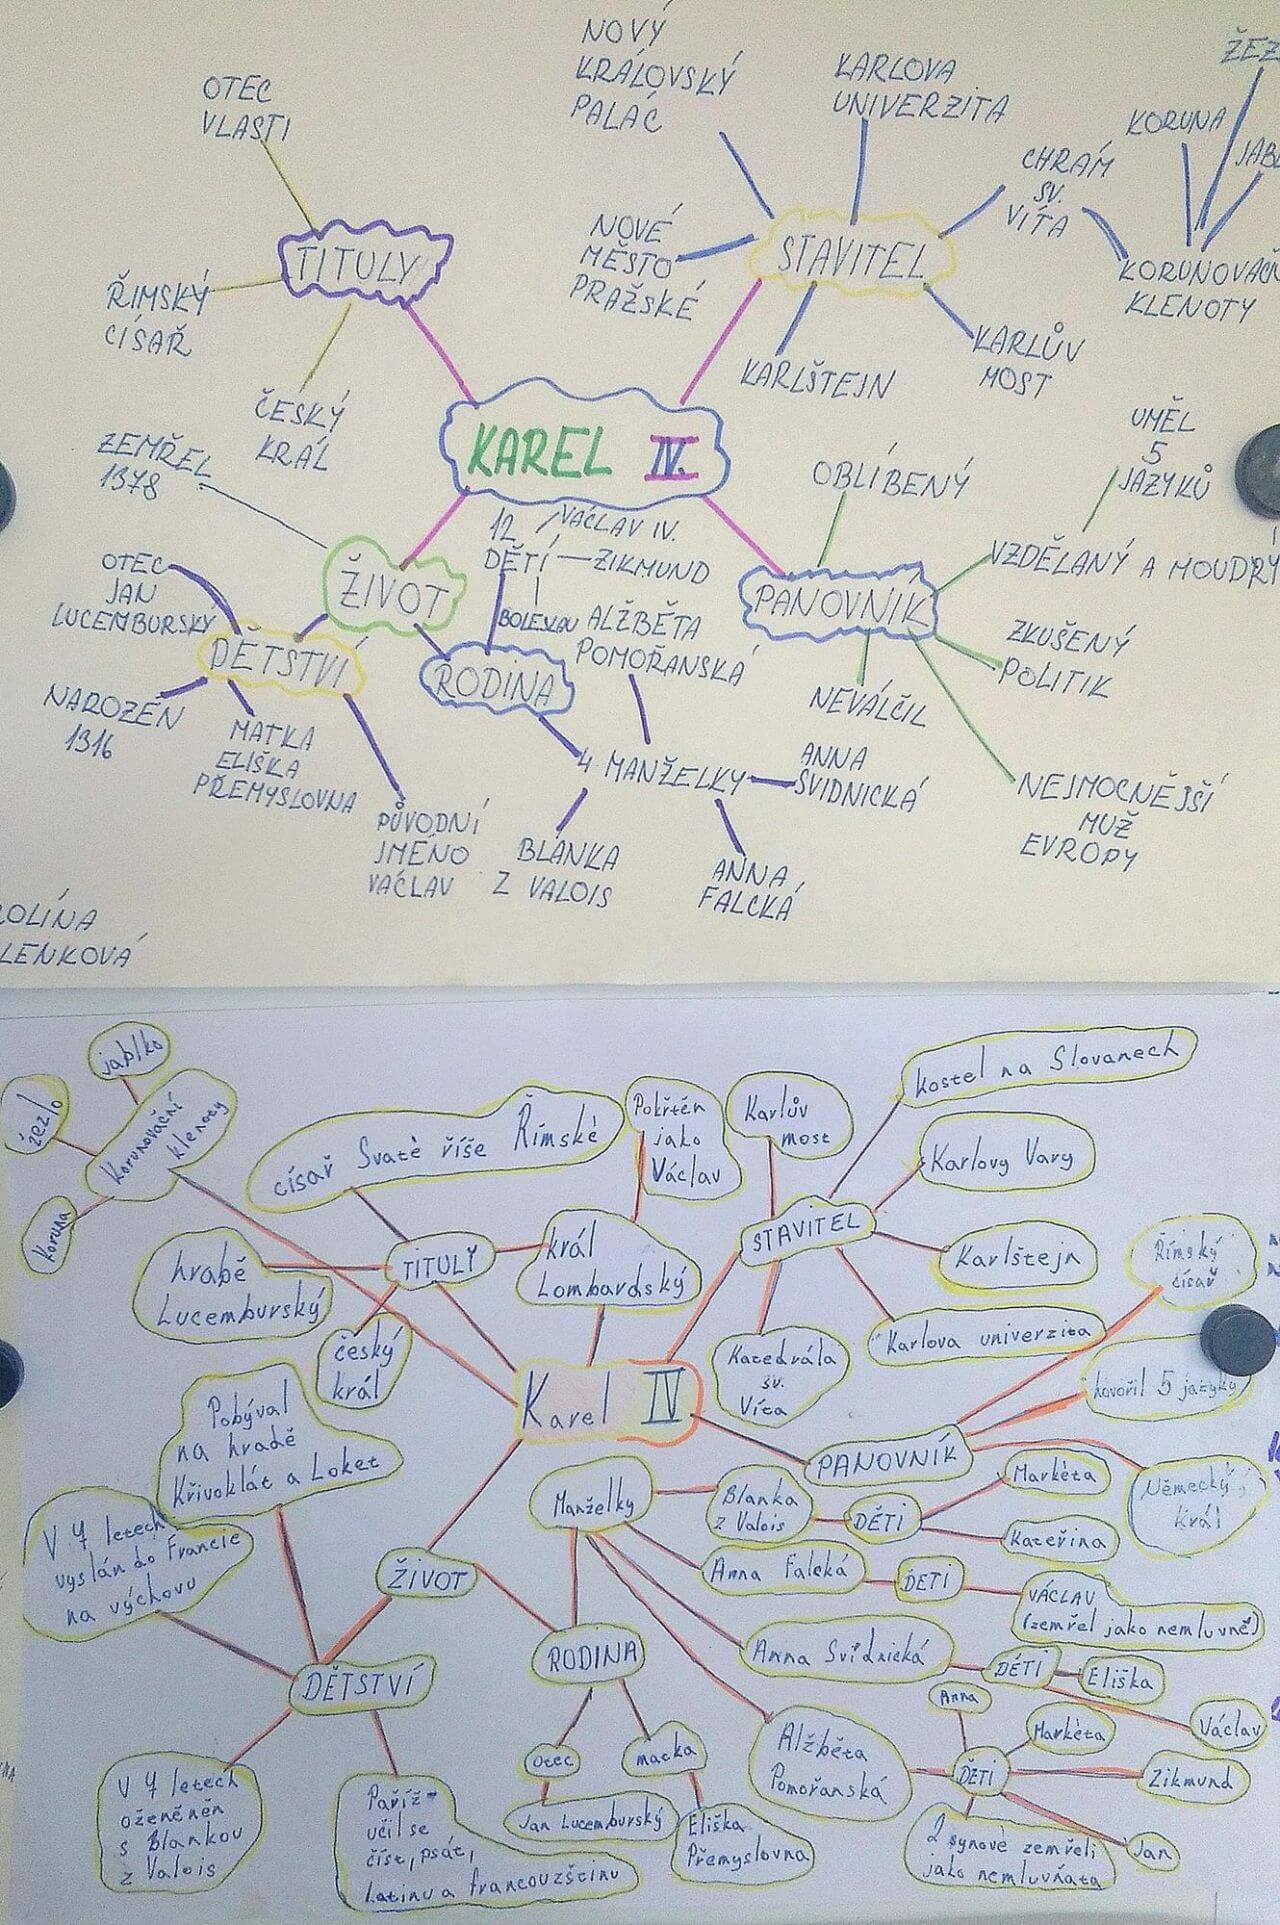 NOVÝ
KRÁLOVSKÝ
PALÁC
KARLOVA
UNIVERZITA
OTEC
VLASTI
KORUNA
CHRÁM
SV.
VÍTA
NOVÉ
MĚSTO
PRAŽSKÉ
STAVITEL
TITULY
ŘÍMSKÝ
CÍSAŘ
KLENOTY
KARLŠTEJN
KARLŮV
MOST
ČESKÝ
KRÁL
KAREL IV.
ZEMŘEL
1378
OBLÍBENÝ
UMĚL
5
JAZYKŮ
12
DĚTÍ
VÁCLAV IV.
ZIKMUND
BOLESLAV
VZDĚLANÝ A MOUDRÝ
OTEC
JAN
LUCEMBURSKÝ
ŽIVOT
PANOVNÍK
ALŽBĚTA
POMOŘANSKÁ
ZKUŠENÝ
POLITIK
DĚTSTVÍ
RODINA
NEVÁLČIL
NAROZEN
1316
MATKA
ELIŠKA
PŘEMYSLOVNA
4 MANŽELKY
ANNA
SVIDNICKÁ
NEJMOCNĚJŠÍ
MUŽ
EVROPY
PŮVODNÍ
JMÉNO
VÁCLAV
BLANKA
Z VALOIS
ANNA
FALCKÁ
OLÍNA
LENKOVÁ
jablko
žezlo
Korunovační
klenoty
Koruna
císař Svaté říše Římské
Pokřtěn
jako
Václav
Karlův
most
kostel na Slovanech
Karlovy Vary
STAVITEL
Karlštejn
Římský
císař
hrabě
Lucemburský
TITULY
král
Lombardský
český
král
Katedrála
sv.
Víta
Karlova univerzita
hovořil 5 jazyky
Karel IV
PANOVNÍK
Německý
král
Pobýval
na hradě
Křivoklát a Loket
Manželky
Blanka
z Valois
DĚTI
Markéta
Kateřina
V 7 letech
vyslán do Francie
na výchovu
ŽIVOT
Anna Falcká
DĚTI
VÁCLAV
(zemřel jako nemluvně)
RODINA
Anna Svídnická
DĚTI
Eliška
Václav
DĚTSTVÍ
otec
matka
Jan Lucemburský
Eliška
Přemyslovna
Alžběta
Pomořanská
DĚTI
Anna
Markéta
Zikmund
Jan
2 synové zemřeli
jako nemluvňata
V 7 letech
oženěn
s Blankou
z Valois
Paříž-
učil se
číst, psát,
latinu a francouzštinu